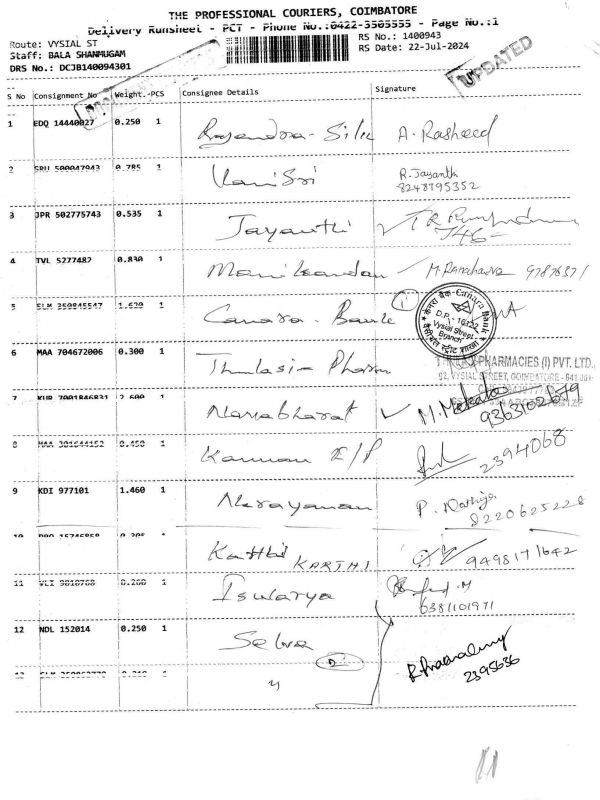 THE PROFESSIONAL COURIERS, COIMBATORE
Delivery Runsheet - PCT - Phone No.:0422-3505555 - Page No.:1
Route: VYSIAL ST
RS No.: 1400943
Staff: BALA SHANMUGAM
RS Date: 22-Jul-2024
DRS No.: DCJB140094301
UPDATED
S No Consignment No Weight.-PCS Consignee Details Signature
1 EDQ 14440027 0.250 1 Rajendra-Silk A. Rasheed
2 SBU 500047943 0.785 1 VaniSri R. Jayanthi
8248795352
3 JPR 502775743 0.535 1 Jayanthi
4 TVL 5277482 0.830 1 Manikandan
5 SLM 350845547 1.620 1 Canara-Bank
Canara Bank
D.P.- 16322
Vysial Street -
Branch
6 MAA 704672006 0.300 1 Thulasi-Pharm
PHARMACIES (I) PVT. LTD.,
92, VYSIAL STREET, COIMBATORE - 641 001
7 KUR 7001846831 2.600 1 Navabharat
9363102679
8 MAA 381644152 0.450 1 Kannan E/P
2394068
9 KDI 977101 1.460 1 Narayanan
8220625228
10 1 Karthi KARTHI
9498171642
11 VLI 0.260 1 Iswarya
6381101971
12 NDL 152014 0.250 1 Selva
2395636
13 1 "